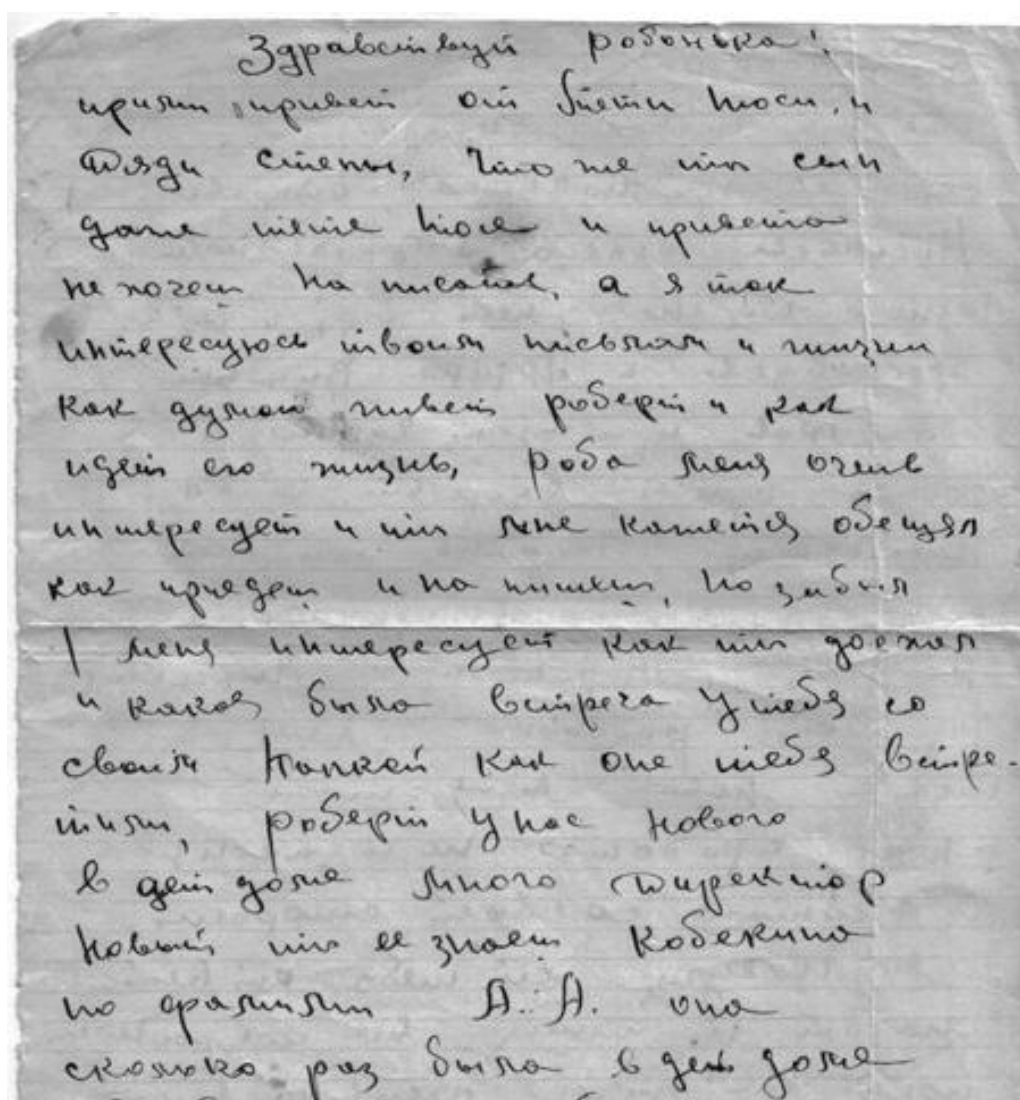 Здравствуй робонька!
прими привет от тети Тоси, и
Дяди Степы, Что же ты сын
даже тете Тосе и привета
не хочеш На писать, а я так
интересуюсь твоим письмам и жизни
Как думаю живет роберт и как
идет его жизнь, роба меня очень
интересует и ты мне кажется обещал
как приедеш и на пишеш, но забыл
меня интересует как ты доехал
и какая была встреча У тебя со
своим Папкой как оне тебя встре-
тили, роберт У нас Нового
в дет доме много Директор
Новый ты ее знаеш Кобекина
по фамилии А. А. она
сколько раз была в дет доме